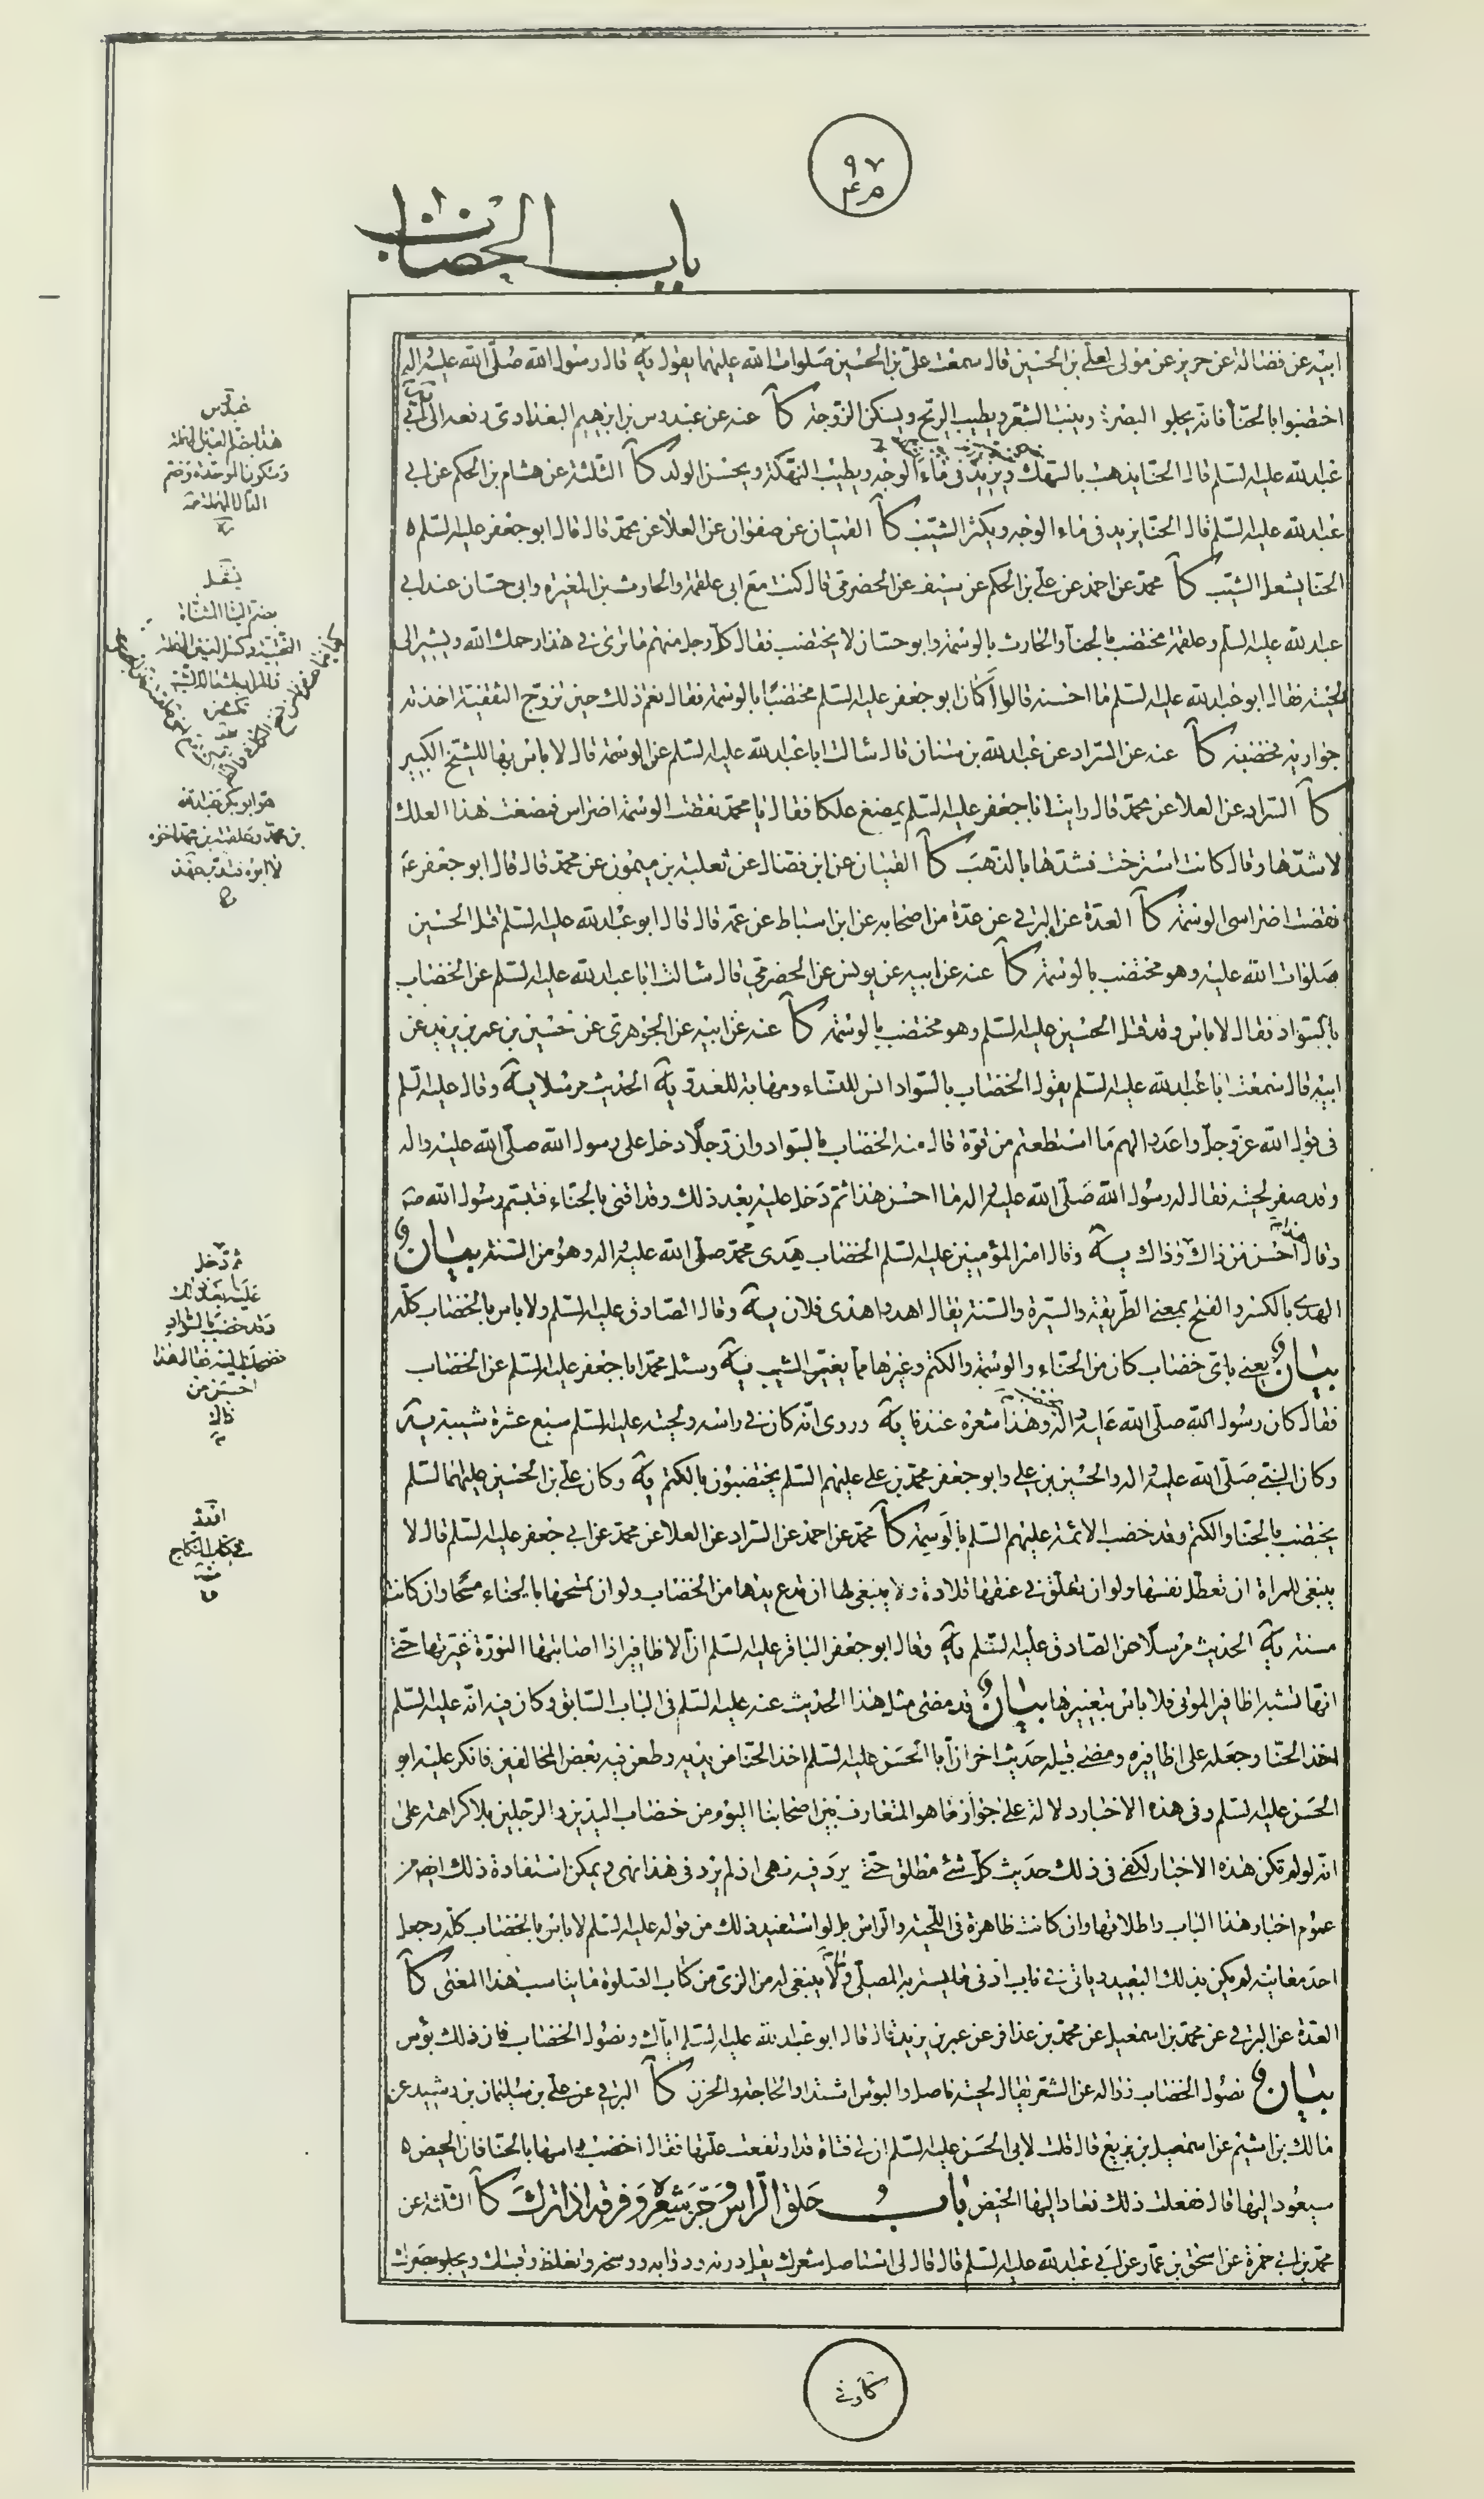 ٩٧
باب الخضاب
ابيه عن فضالة عن حريز عن مولى لعلي بن الحسين قال سمعت علي بن الحسين صلوات الله عليهما يقول يه قال رسول الله صلى الله عليه واله
اختضبوا بالحنا فانه يجلو البصر وينبت الشعر ويطيب الريح ويسكن الزوجة كا عنه عن عبدوس بن ابرهيم البغدادي رفعه الى ابي
عبدالله عليه السلم قال الحنا يذهب بالسهك ويزيد في ماء الوجه ويطيب النهكة ويحسن الولد كا الثلثة عن هشام بن الحكم عن ابي
عبدالله عليه السلم قال الحنا يزيد في ماء الوجه ويكثر الشيب كا الفتيان عن صفوان عن العلا عن محمد قال قال ابو جعفر عليه السلم
الحنا يشعل الشيب كا محمد عن احمد عن علي بن الحكم عن سيف عن الحضرمي قال كنت مع ابي علقمة والحارث بن المغيره وابي حسان عند ابي
عبدالله عليه السلم وعلقمة مختضب بالحنا والحارث بالوسمة وابو حسان لا يختضب فقال كل رجل منهم ما ترى في هذا رحمك الله ويشير الى
لحيته فقال ابو عبدالله عليه السلم ما احسنه قالوا أكان ابو جعفر عليه السلم مختضبا بالوسمة فقال نعم ذلك حين تزوج الثقفية اخذته
جواريه فخضبنه كا عنه عن السراد عن عبدالله بن سنان قال سالت ابا عبدالله عليه السلم عن الوسمة قال لا باس بها للشيخ الكبير
كا السراد عن العلا عن محمد قال رايت ابا جعفر عليه السلم يمضغ علكا فقال يا محمد نقضت الوسمة اضراسي فمضغت هذا العلك
لاشدها وقال كانت استرخت فشدها بالذهب كا الفتيان عن ابن فضال عن ثعلبة بن ميمون عن محمد قال قال ابو جعفر ع
نقضت اضراسي الوسمة كا العدة عن البرقي عن عدة من اصحابه عن ابن اسباط عن عمه قال قال ابو عبدالله عليه السلم قتل الحسين
صلوات الله عليه وهو مختضب بالوسمة كا عنه عن ابيه عن يونس عن الحضرمي قال سالت ابا عبدالله عليه السلم عن الخضاب
بالسواد فقال لا باس وقد قتل الحسين عليه السلم وهو مختضب بالوسمة كا عنه عن ابيه عن الجوهري عن حسين بن عمر بن يزيد عن
ابيه قال سمعت ابا عبدالله عليه السلم يقول الخضاب بالسواد انس للنساء ومهابة للعدو يه الحديث مرسلا يه وقال عليه السلم
في قول الله عز وجل واعدوا لهم ما استطعتم من قوة قال منه الخضاب بالسواد وان رجلا دخل على رسول الله صلى الله عليه واله
وقد صفر لحيته فقال له رسول الله صلى الله عليه واله ما احسن هذا ثم دخل عليه بعد ذلك وقد اقنى بالحناء فتبسم رسول الله ص
وقال هذا احسن من ذاك وذاك يه وقال امير المؤمنين عليه السلم الخضاب هدى محمد صلى الله عليه واله وهو من السنة بيان
الهدي بالكسر والفتح بمعنى الطريقة والسيرة والسنة يقال اهدوا هدى فلان يه وقال الصادق عليه السلم ولا باس بالخضاب كله
بيان يعني باي خضاب كان من الحناء والوسمة والكتم وغيرها مما يغير الشيب يه وسئل محمد ابا جعفر عليه السلم عن الخضاب
فقال كان رسول الله صلى الله عليه واله وهذا شعره عندنا يه وروى انه كان في راسه ولحيته عليه السلم سبع عشرة شيبة يه
وكان النبي صلى الله عليه واله والحسين بن علي وابو جعفر محمد بن علي عليهم السلم يختضبون بالكتم يه وكان علي بن الحسين عليهما السلم
يختضب بالحنا والكتم وقد خضب الائمة عليهم السلم بالوسمة كا محمد عن احمد عن السراد عن العلا عن محمد عن ابي جعفر عليه السلم قال لا
ينبغي للمراة ان تعطل نفسها ولو ان تعلق في عنقها قلادة ولا ينبغي لها ان تدع يدها من الخضاب ولو ان تمسحها بالحناء مسحا وان كانت
مسنة يه الحديث مرسلا عن الصادق عليه السلم يه وقال ابو جعفر الباقر عليه السلم ان الاظافير اذا اصابتها النورة غيرتها حتى
انها تشبه اظافير الموتى فلا باس بتغييرها بيان قد مضى مثل هذا الحديث عنه عليه السلم في الباب السابق وكان فيه انه عليه السلم
اخذ الحنا وجعله على اظافيره ومضى قبيله حديث اخر ان ابا الحسن عليه السلم اخذ الحنا من يديه وطعن فيه بعض المخالفين فانكر عليه ابو
الحسن عليه السلم وفي هذه الاخبار دلالة على جواز ما هو المتعارف بين اصحابنا اليوم من خضاب اليدين والرجلين بلا كراهة على
انه لو لم تكن هذه الاخبار لكفى في ذلك حديث كل شئ مطلق حتى يرد فيه نهى اذ لم يرد في هذا نهى ويمكن استفادة ذلك ايضا من
عموم اخبار هذا الباب واطلاقها وان كانت ظاهرة في اللحية والراس بل لو استفيد ذلك من قوله عليه السلم لا باس بالخضاب كله وجعل
احد معانيه لم يكن بذلك البعيد وياتي في باب ادنى ما يستر به المصلي ولا ينبغي له من الزي من كتاب الصلوة ما يناسب هذا المعنى كا
العدة عن البرقي عن محمد بن اسمعيل عن محمد بن عذافر عن عمر بن يزيد قال قال ابو عبدالله عليه السلم اياك ونصول الخضاب فان ذلك بؤس
بيان نصول الخضاب زواله عن الشعر يقال لحيته ناصل والبؤس اشتداد الحاجة والحزن كا البرقي عن علي بن سليمان بن رشيد عن
مالك بن اشيم عن اسمعيل بن بزيع قال قلت لابي الحسن عليه السلم ان لي فتاة قد ارتفعت علتها فقال اخضب راسها بالحنا فان الحيض
سيعود اليها قال ففعلت ذلك فعاد اليها الحيض باب حلق الراس وجز شعره وفرقه اذا ترك كا الثلثة عن
محمد بن ابي حمزة عن اسحق بن عمار عن ابي عبدالله عليه السلم قال قال لي استاصل شعرك يقل درنه ودوابه ووسخه وتغلظ رقبتك ويجلو بصرك
عبدوس
هذا بضم العين المهملة
وسكون الموحدة وضم
الدال المهملة
بضم الياء المثناة
هو ابو بكر عبدالله
بن محمد وعلقمة بن محمد اخوه
ثم دخل
عليه بعد ذلك
وقد خضب بالسواد
فضحك اليه فقال هذا
احسن من
ذاك
في كتاب النكاح